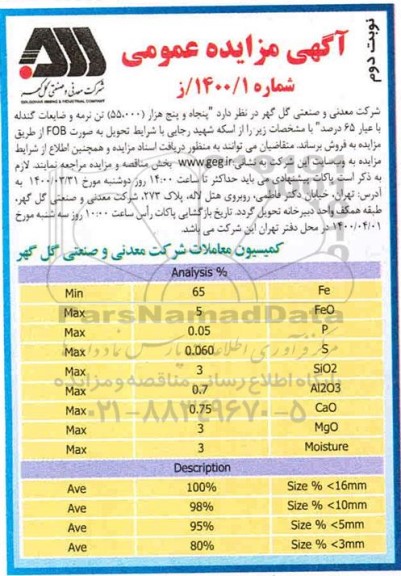 نوبت دوم
آگهی مزایده عمومی
شماره ۱۴۰۰/۱/ز
شرکت معدنی و صنعتی گل گهر
GOLGOHAR MINING & INDUSTRIAL COMPANY
شرکت معدنی و صنعتی گل گهر در نظر دارد "پنجاه و پنج هزار (۵۵،۰۰۰) تن نرمه و ضایعات گندله
با عیار ۶۵ درصد" با مشخصات زیر را از اسکه شهید رجایی با شرایط تحویل به صورت FOB از طریق
مزایده به فروش برساند. متقاضیان می توانند به منظور دریافت اسناد مزایده و همچنین اطلاع از شرایط
مزایده به وب سایت این شرکت به نشانی www.geg.ir بخش مناقصه و مزایده مراجعه نمایند. لازم
به ذکر است پاکات پیشنهادی می باید حداکثر تا ساعت ۱۴:۰۰ روز دوشنبه مورخ ۱۴۰۰/۰۳/۳۱ به
آدرس: تهران، خیابان دکتر فاطمی، روبروی هتل لاله، پلاک ۲۷۳، شرکت معدنی و صنعتی گل گهر،
طبقه همکف واحد دبیرخانه تحویل گردد. تاریخ بازگشایی پاکات رأس ساعت ۱۰:۰۰ روز سه شنبه مورخ
۱۴۰۰/۰۴/۰۱ در محل دفتر تهران این شرکت می باشد.
کمیسیون معاملات شرکت معدنی و صنعتی گل گهر
Analysis %
Min 65 Fe
Max 5 FeO
Max 0.05 P
Max 0.060 S
Max 3 SiO2
Max 0.7 Al2O3
Max 0.75 CaO
Max 3 MgO
Max 3 Moisture
Description
Ave 100% Size % <16mm
Ave 98% Size % <10mm
Ave 95% Size % <5mm
Ave 80% Size % <3mm
ParsNamadData
مرکز فرآوری اطلاعات پارس نماد داده ها
پایگاه اطلاع رسانی مناقصه و مزایده
۰۲۱-۸۸۳۴۹۶۷۰-۵